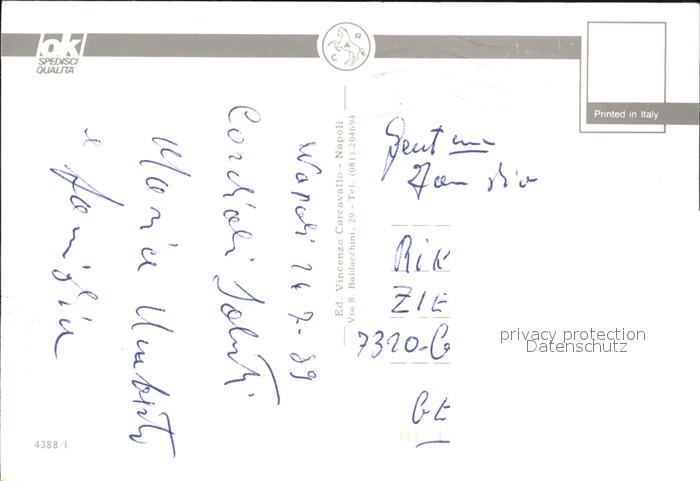 ok
SPEDISCI
QUALITÀ
C A R
Printed in Italy
Napoli 24-7-89
Cordiali Saluti
Maria Umberto
e famiglia
Ed. Vincenzo Carcavallo - Napoli
Via S. Baldacchini, 29 - Tel. (081) 204694
Gent.
RIK
ZIE
7320-G
GE
privacy protection
Datenschutz
4388/f